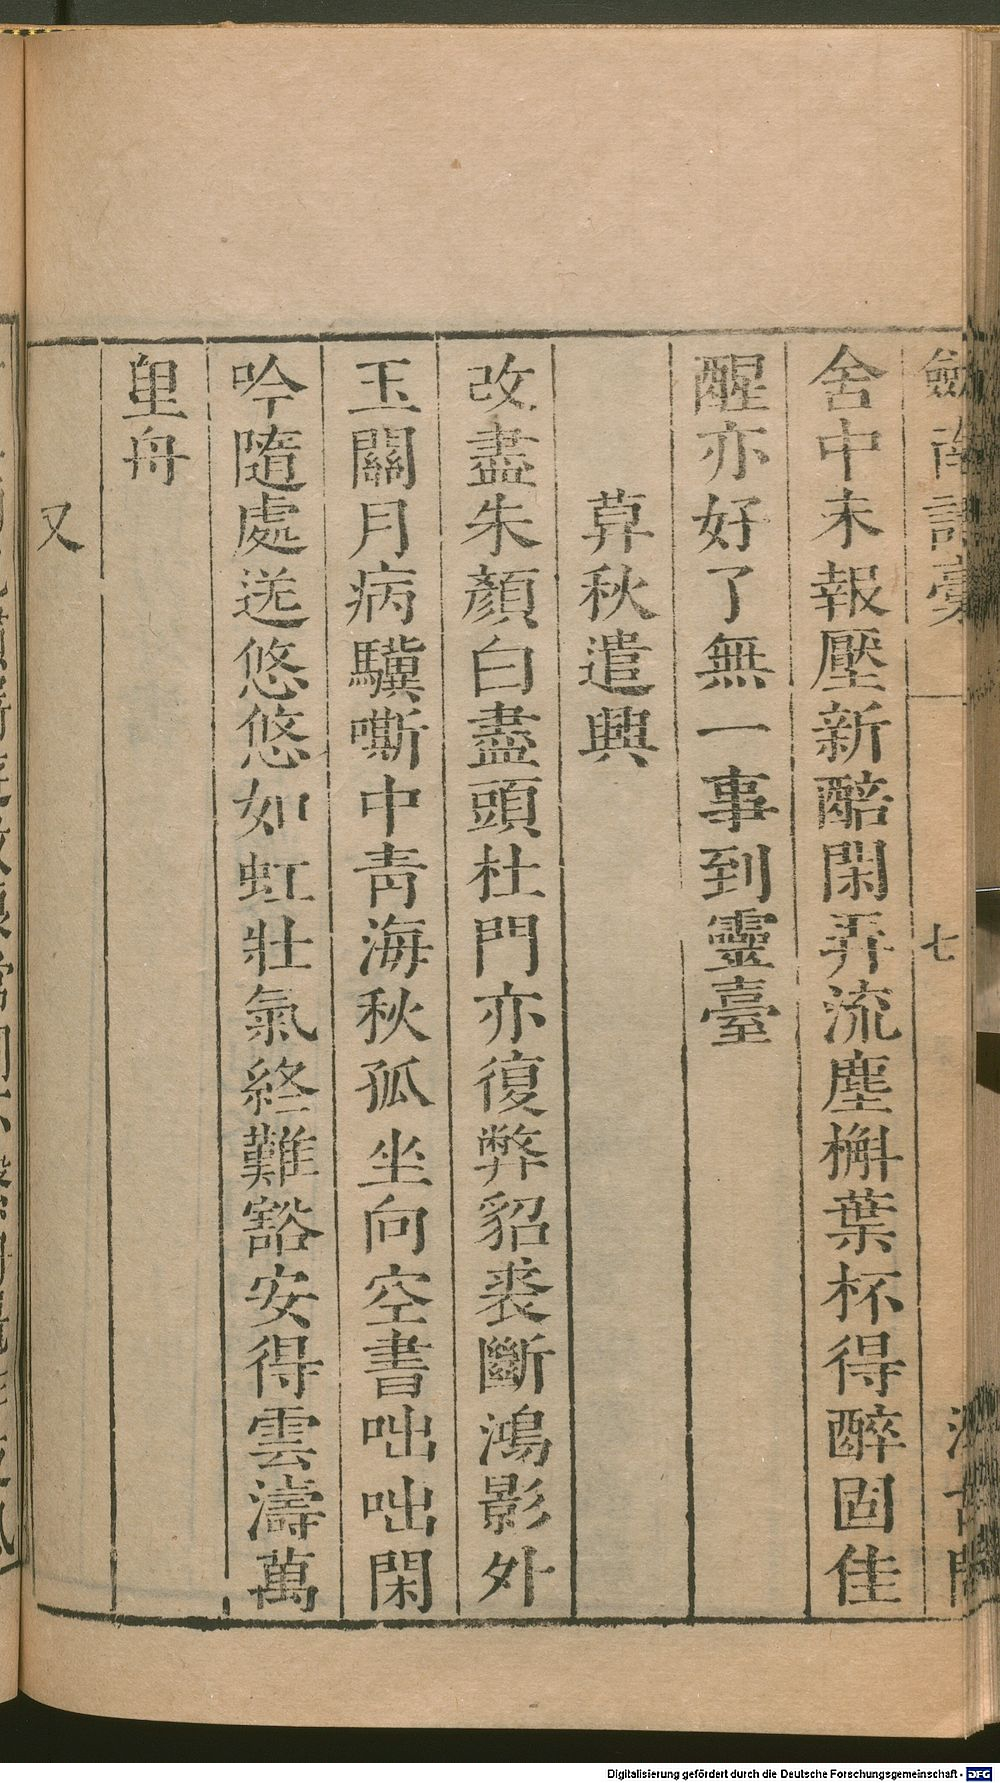 劍南詩稾
七
舍中未報壓新醅閑弄流塵槲葉杯得醉固佳
醒亦好了無一事到靈臺
莫秋遣興
改盡朱顏白盡頭杜門亦復弊貂裘斷鴻影外
玉關月病驥嘶中青海秋孤坐向空書咄咄閑
吟隨處送悠悠如虹壯氣終難豁安得雲濤萬
里舟
又
Digitalisierung gefördert durch die Deutsche Forschungsgemeinschaft - DFG